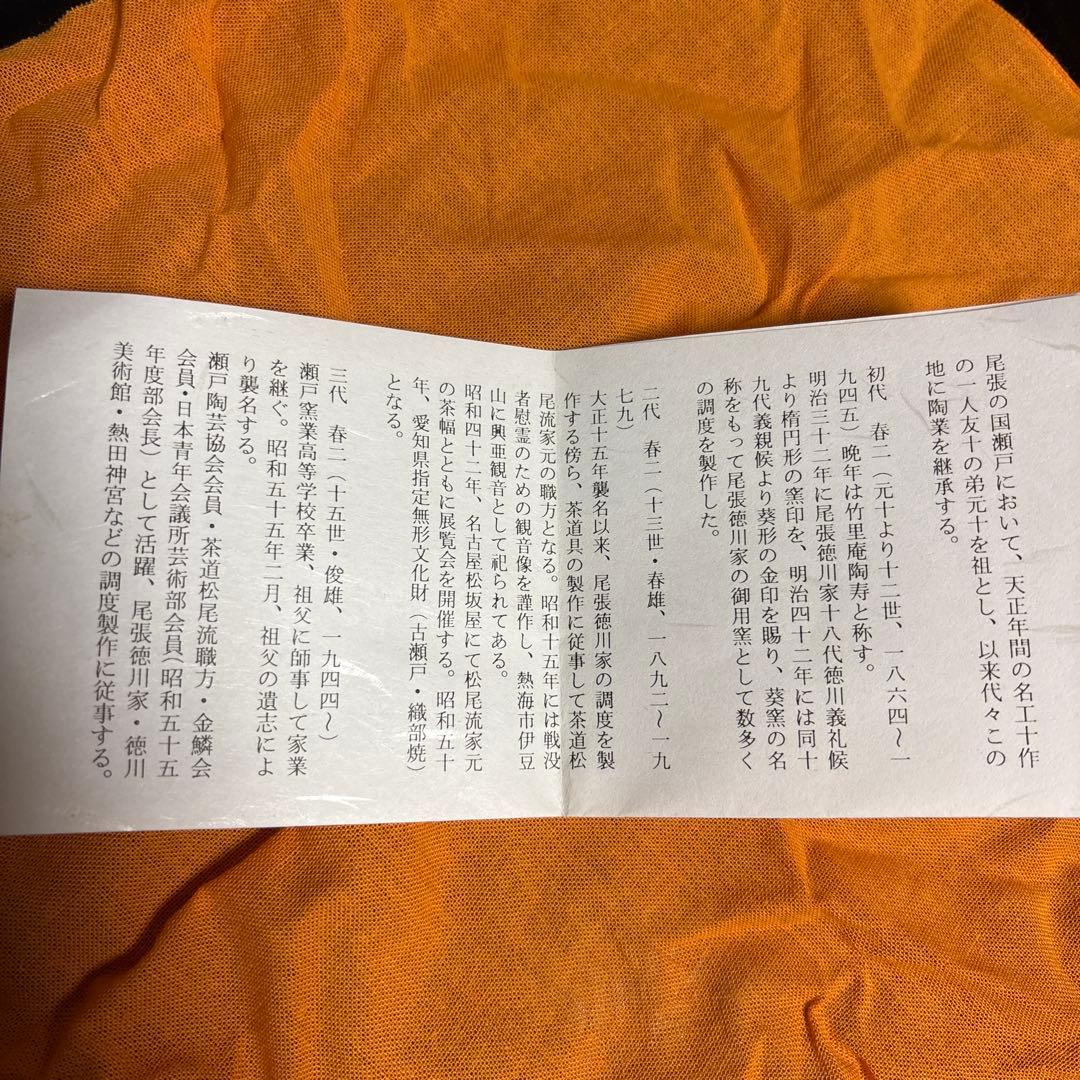 尾張の国瀬戸において、天正年間の名工十作
の一人友十の弟元十を祖とし、以来代々この
地に陶業を継承する。
初代　春二（元十より十二世、一八六四～一
九四五）晩年は竹里庵陶寿と称す。
明治三十二年に尾張徳川家十八代徳川義礼候
より楕円形の窯印を、明治四十二年には同十
九代義親候より葵形の金印を賜り、葵窯の名
称をもって尾張徳川家の御用窯として数多く
の調度を製作した。
二代　春二（十三世・春雄、一八九二～一九
七九）
大正十五年襲名以来、尾張徳川家の調度を製
作する傍ら、茶道具の製作に従事して茶道松
尾流家元の職方となる。昭和十五年には戦没
者慰霊のための観音像を謹作し、熱海市伊豆
山に興亜観音として祀られてある。
昭和四十二年、名古屋松坂屋にて松尾流家元
の茶幅とともに展覧会を開催する。昭和五十
年、愛知県指定無形文化財（古瀬戸・織部焼）
となる。
三代　春二（十五世・俊雄、一九四四～）
瀬戸窯業高等学校卒業、祖父に師事して家業
を継ぐ。昭和五十五年二月、祖父の遺志によ
り襲名する。
瀬戸陶芸協会会員・茶道松尾流職方・金鱗会
会員・日本青年会議所芸術部会員（昭和五十五
年度部会長）として活躍、尾張徳川家・徳川
美術館・熱田神宮などの調度製作に従事する。